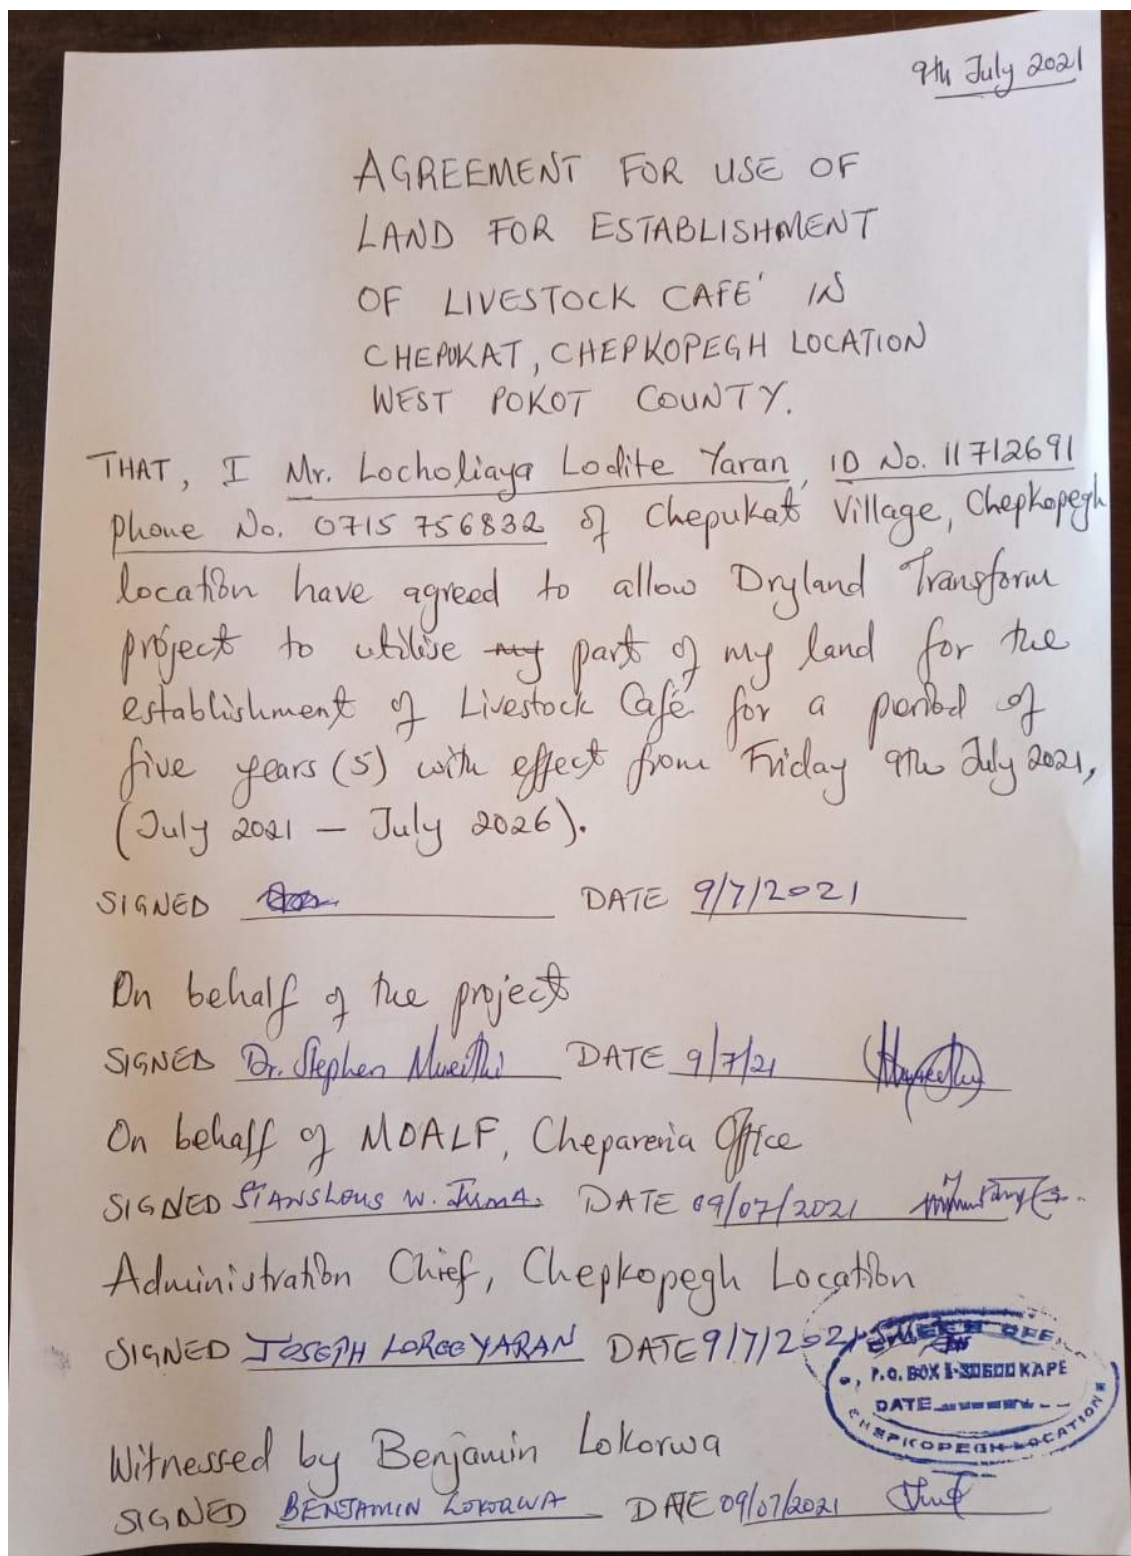 9th July 2021
AGREEMENT FOR USE OF
LAND FOR ESTABLISHMENT
OF LIVESTOCK CAFE' IN
CHEPUKAT, CHEPKOPEGH LOCATION
WEST POKOT COUNTY.
THAT, I Mr. Locholiaya Lodite Yaran, ID No. 11712691
phone No. 0715 756832 of Chepukat Village, Chepkopegh
location have agreed to allow Dryland Transform
project to utilise my part of my land for the
establishment of Livestock Café for a period of
five years (5) with effect from Friday 9th July 2021,
(July 2021 – July 2026).
SIGNED DATE 9/7/2021
On behalf of the project
SIGNED Dr. Stephen Mureithi DATE 9/7/21
On behalf of MOALF, Chepareria Office
SIGNED STANSLOUS W. JUMA. DATE 09/07/2021
Administration Chief, Chepkopegh Location
SIGNED JOSEPH LOREEYARAN DATE 9/7/2021
P.O. BOX KAPE
DATE
CHEPKOPEGH LOCATION
Witnessed by Benjamin Lokorwa
SIGNED BENJAMIN LOKORWA DATE 09/07/2021